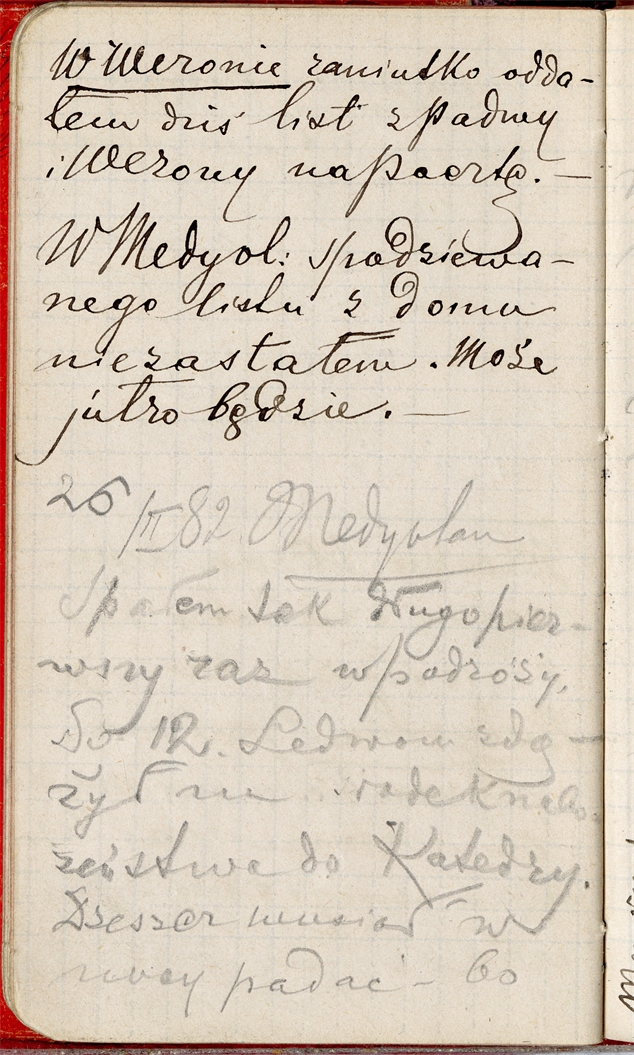 W Weronie raniutko odda-
łem dziś list z Padwy
i Werony na pocztę. —
W Medyol: spodziewa-
nego listu z domu
nie zastałem. Może
jutro będzie. —
26/III 82 Medyolan
Spałem tak długo pier-
wszy raz w podróży.
Do 12. Ledwom zdą-
żył na środek nabo-
żeństwa do Katedry.
Deszcz musiał w
nocy padać – bo